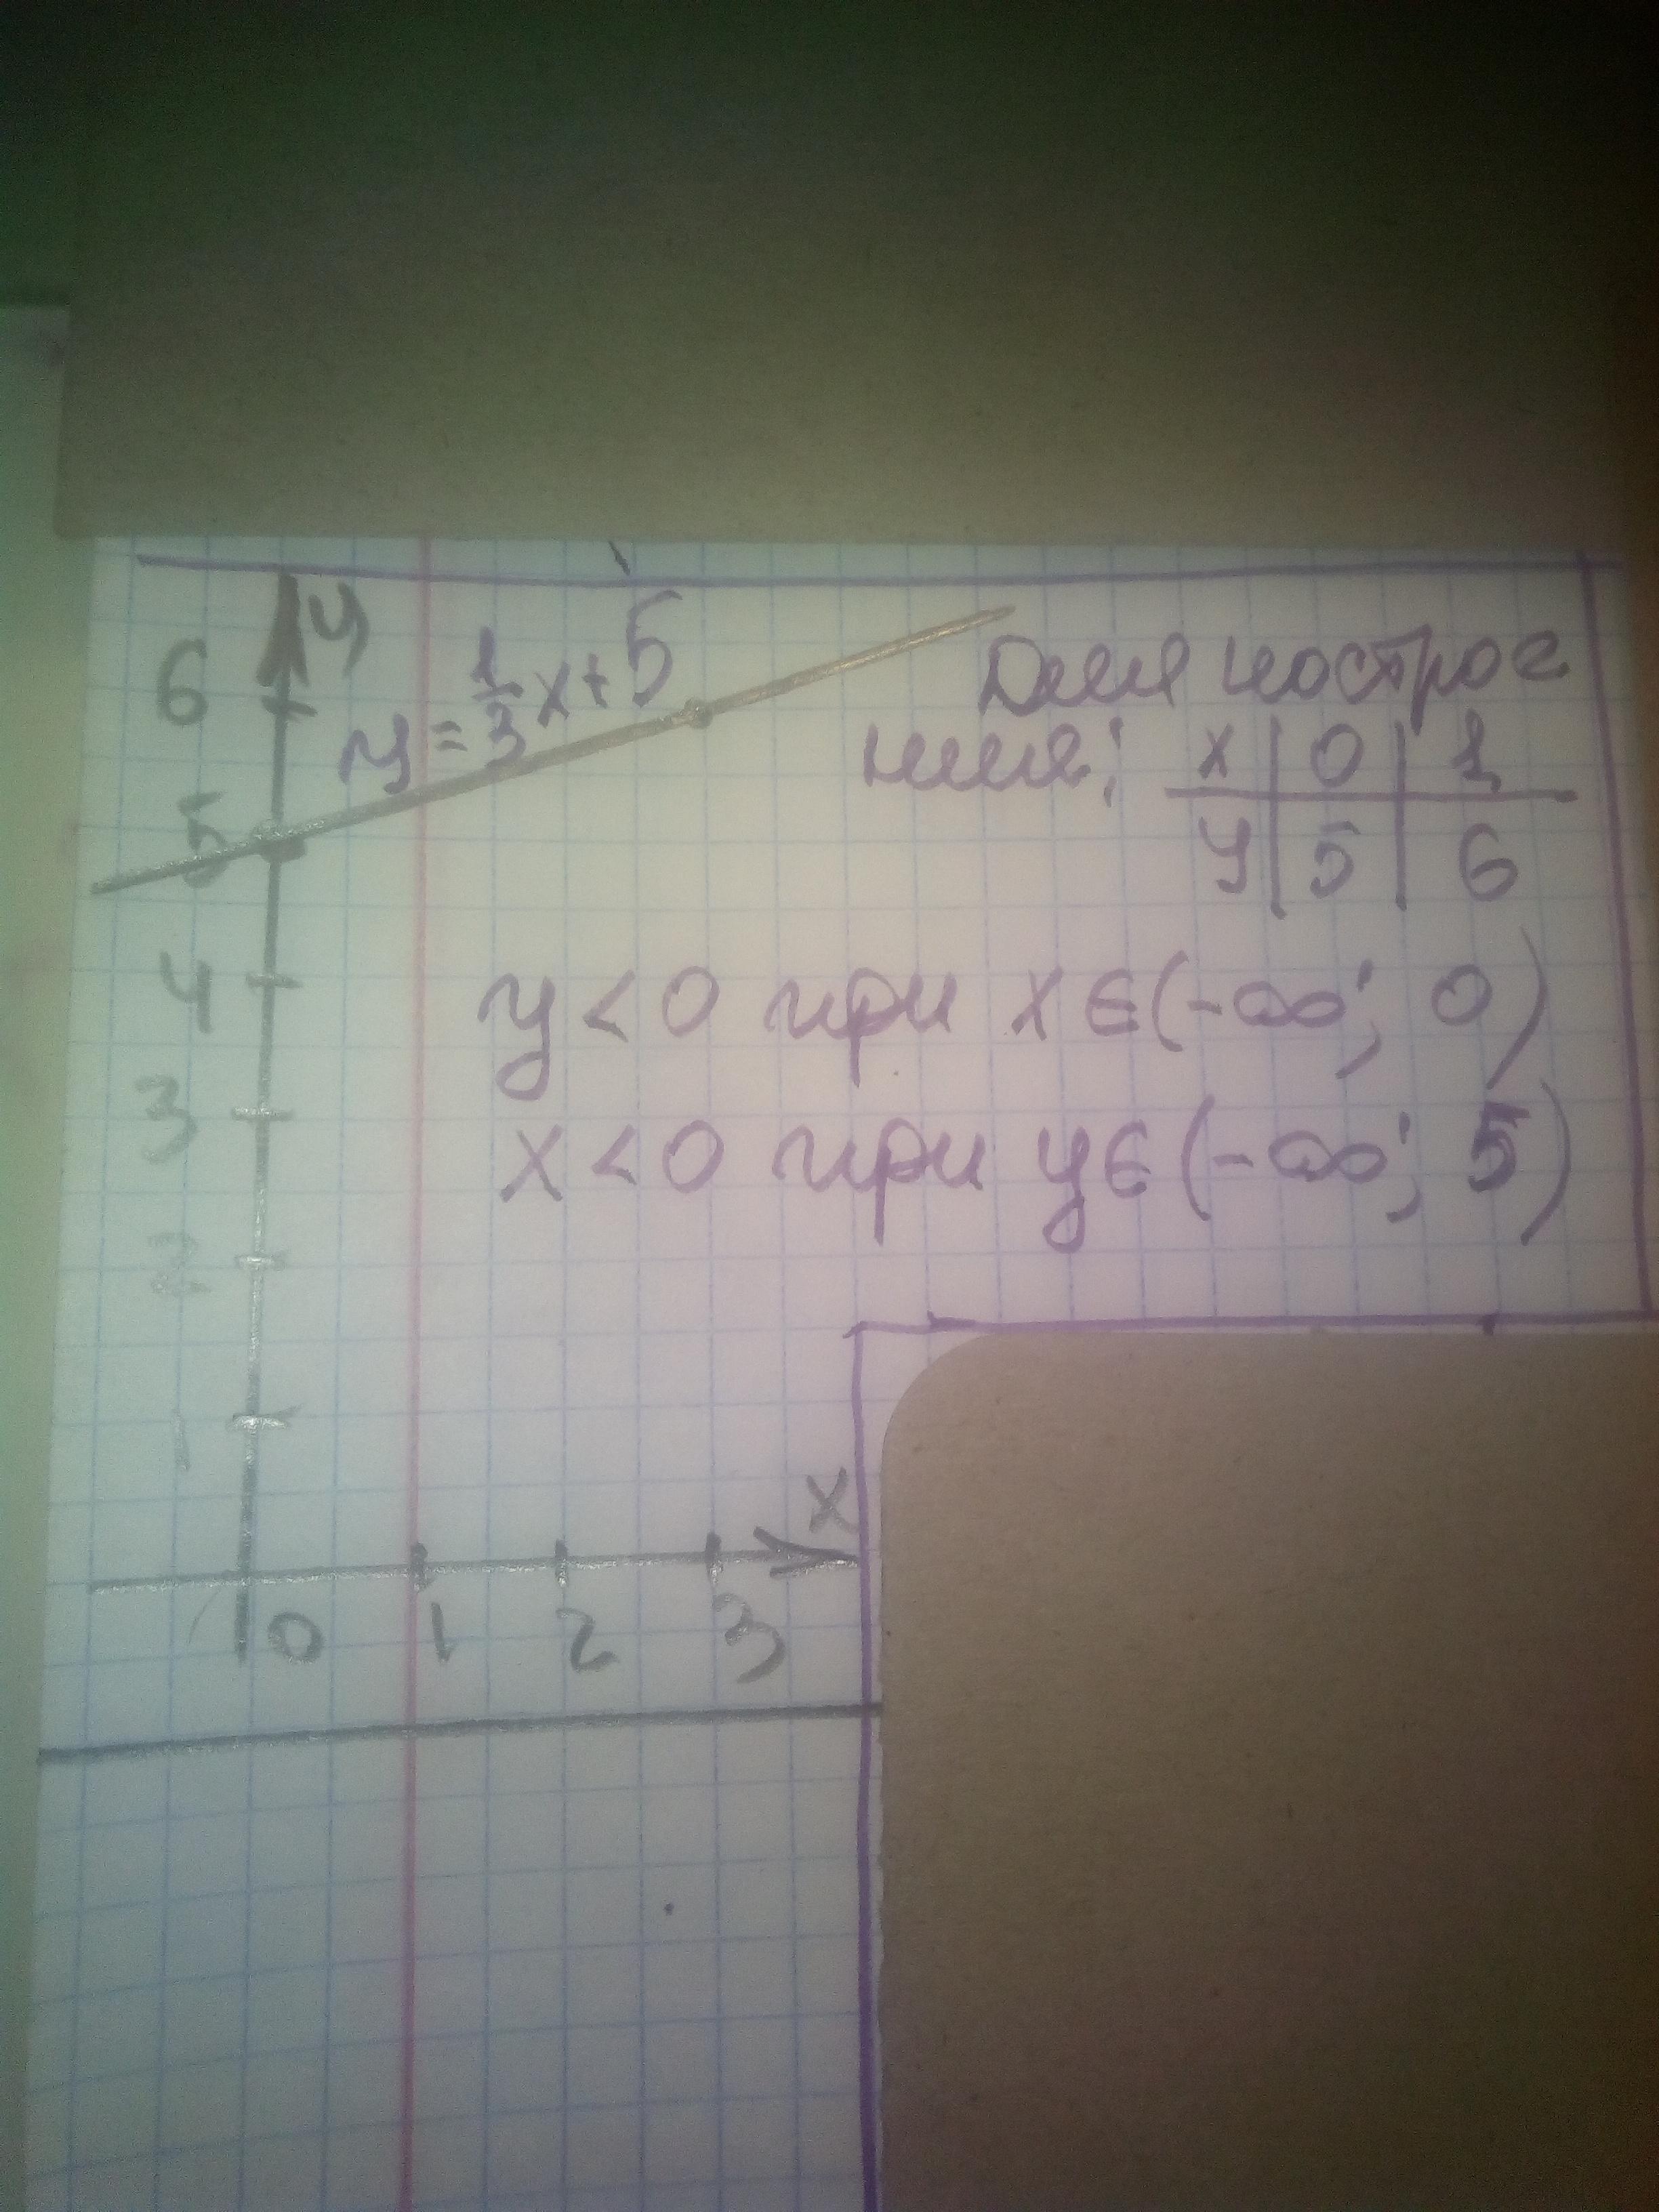 y
6
y = 1/3 x + 5
5
4
3
2
1
Для построе
ния:
x | 0 | 1
y | 5 | 6
y < 0 при x ∈ (-∞; 0)
x < 0 при y ∈ (-∞; 5)
x
0 1 2 3